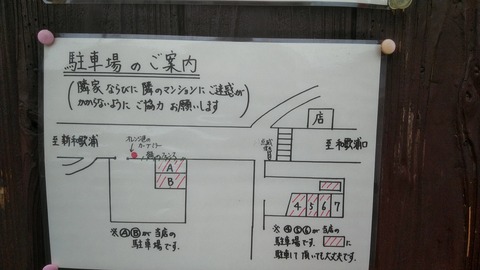 駐車場のご案内
(隣家ならびに隣のマンションにご迷惑が
かからないようにご協力お願いします)
店
至新和歌浦
オレンジ色の
カーブミラー
至和歌浦口
A
B
4 5 6 7
※ⒶⒷが当店の
駐車場です。
※④⑤⑥が当店の
駐車場です。に
駐車して頂いても大丈夫です。